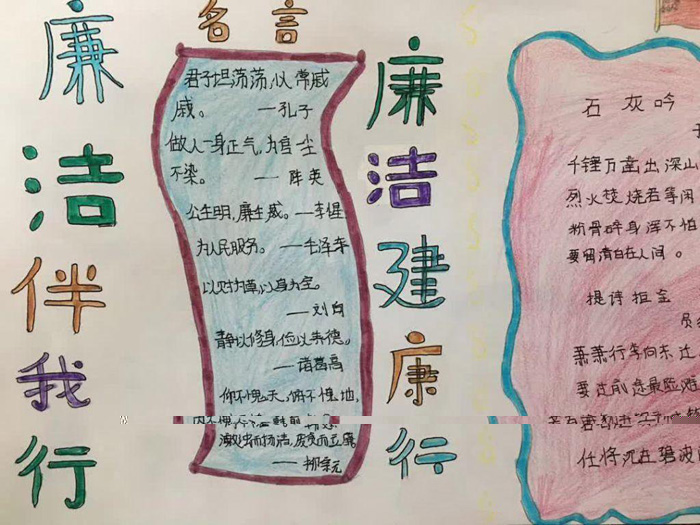 廉洁伴我行
名言
君子坦荡荡,小人常戚
戚。 —孔子
做人一身正气,为官一尘
不染。 —陈英
公生明,廉生威。—李惺
为人民服务。—毛泽东
—刘向
静以修身,俭以养德。
—诸葛亮
仰不愧天,俯不愧地,
内不愧心。
激浊而扬清,废贪而立廉
—柳宗元
廉洁建康行
石灰吟
千锤万凿出深山
烈火焚烧若等闲
粉骨碎身浑不怕
要留清白在人间。
提诗拒金
萧萧行李向东还
要过前途最险难
任将沉在碧波